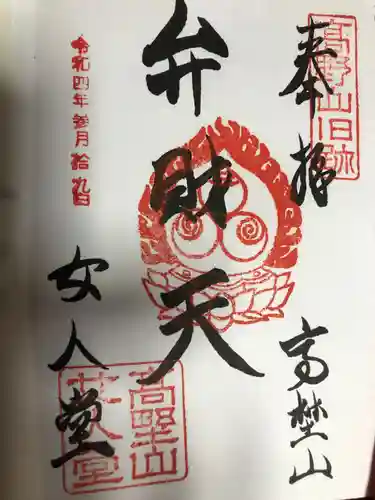 奉拝
高野山旧跡
高埜山
弁財天
令和四年参月拾九日
女人堂
高野山
女人堂